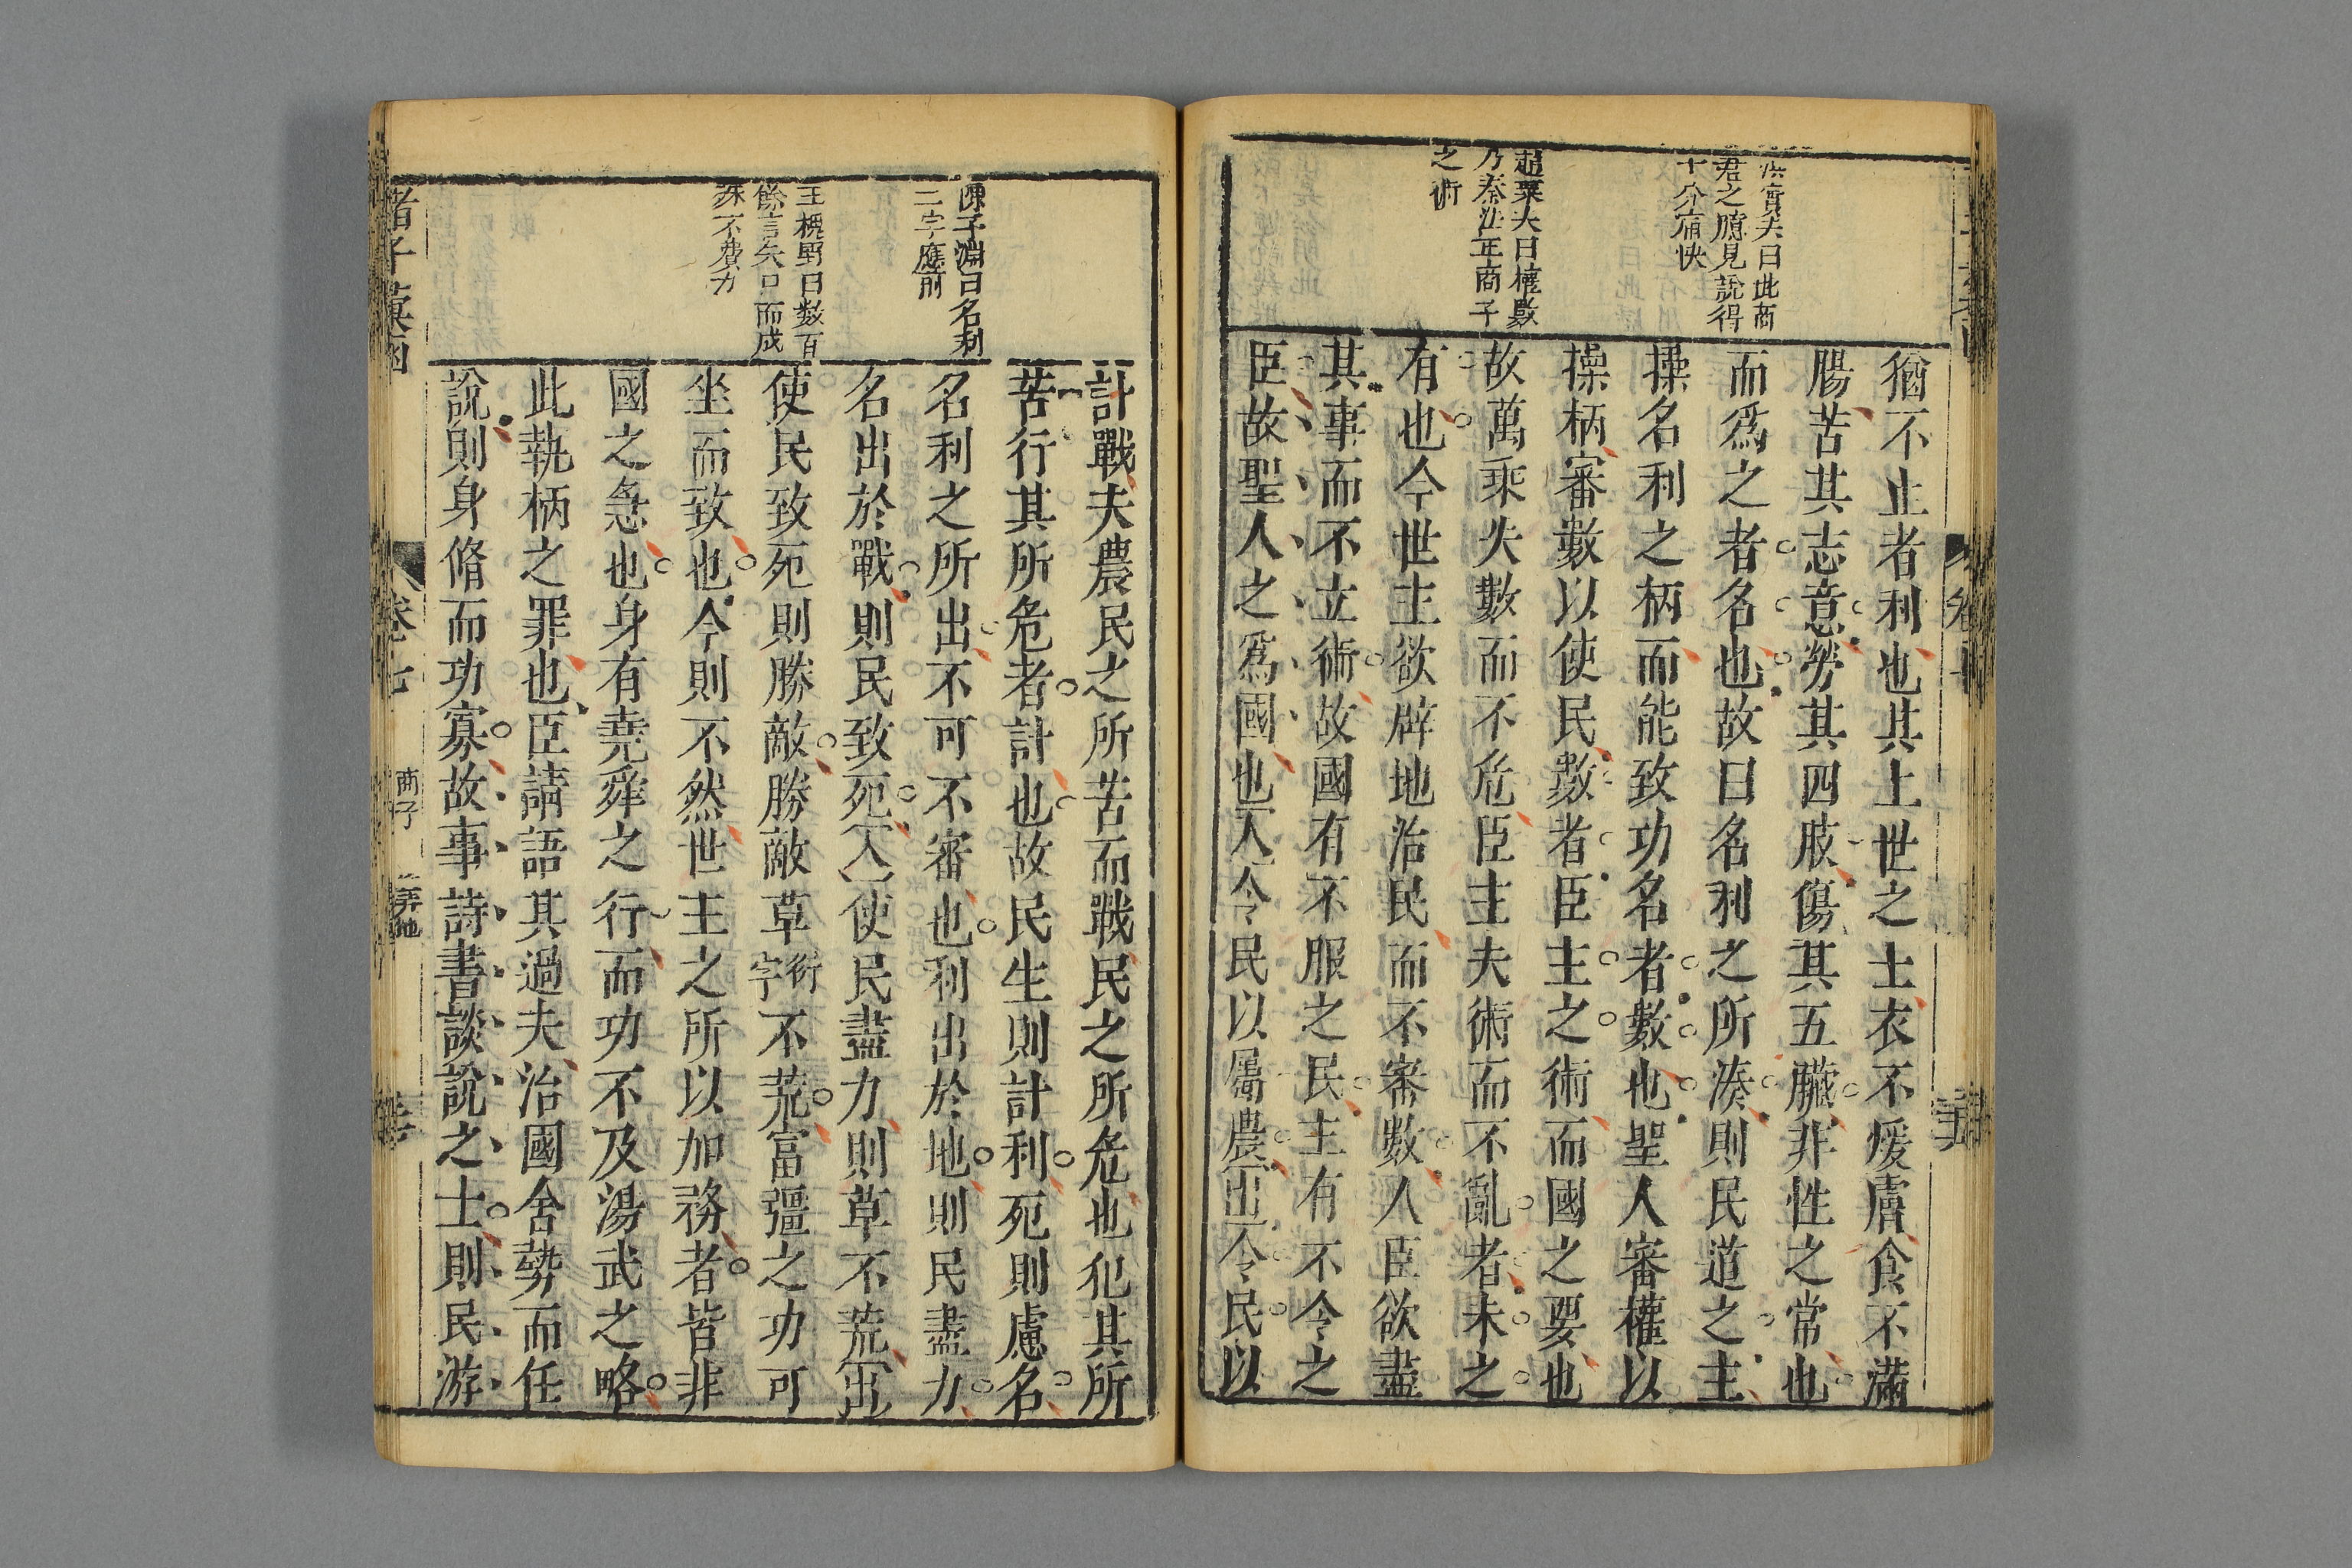 洪實夫曰此商
君之臆見說得
十分痛快
趙粟夫曰權數
乃秦法正商子
之術
猶不止者利也其上世之士衣不煖膚食不滿
腸苦其志意勞其四肢傷其五臟非性之常也
而爲之者名也故曰名利之所湊則民道之主
操名利之柄而能致功名者數也聖人審權以
操柄審數以使民數者臣主之術而國之要也
故萬乘失數而不危臣主夫術而不亂者未之
有也今世主欲辟地治民而不審數人臣欲盡
其事而不立術故國有不服之民主有不令之
臣故聖人之爲國也入令民以屬農出令民以
陳子淵曰名利
二字應前
王槐野曰數百
餘言矢口而成
殊不費力
計戰夫農民之所苦而戰民之所危也犯其所
苦行其所危者計也故民生則計利死則慮名
名利之所出不可不審也利出於地則民盡力
名出於戰則民致死入使民盡力則草不荒出
使民致死則勝敵勝敵草衍字不荒富彊之功可
坐而致也今則不然世主之所以加務者皆非
國之急也身有堯舜之行而功不及湯武之略
此執柄之罪也臣請語其過夫治國舍勢而任
說則身脩而功寡故事詩書談說之士則民游
諸子彙函
卷七
商子